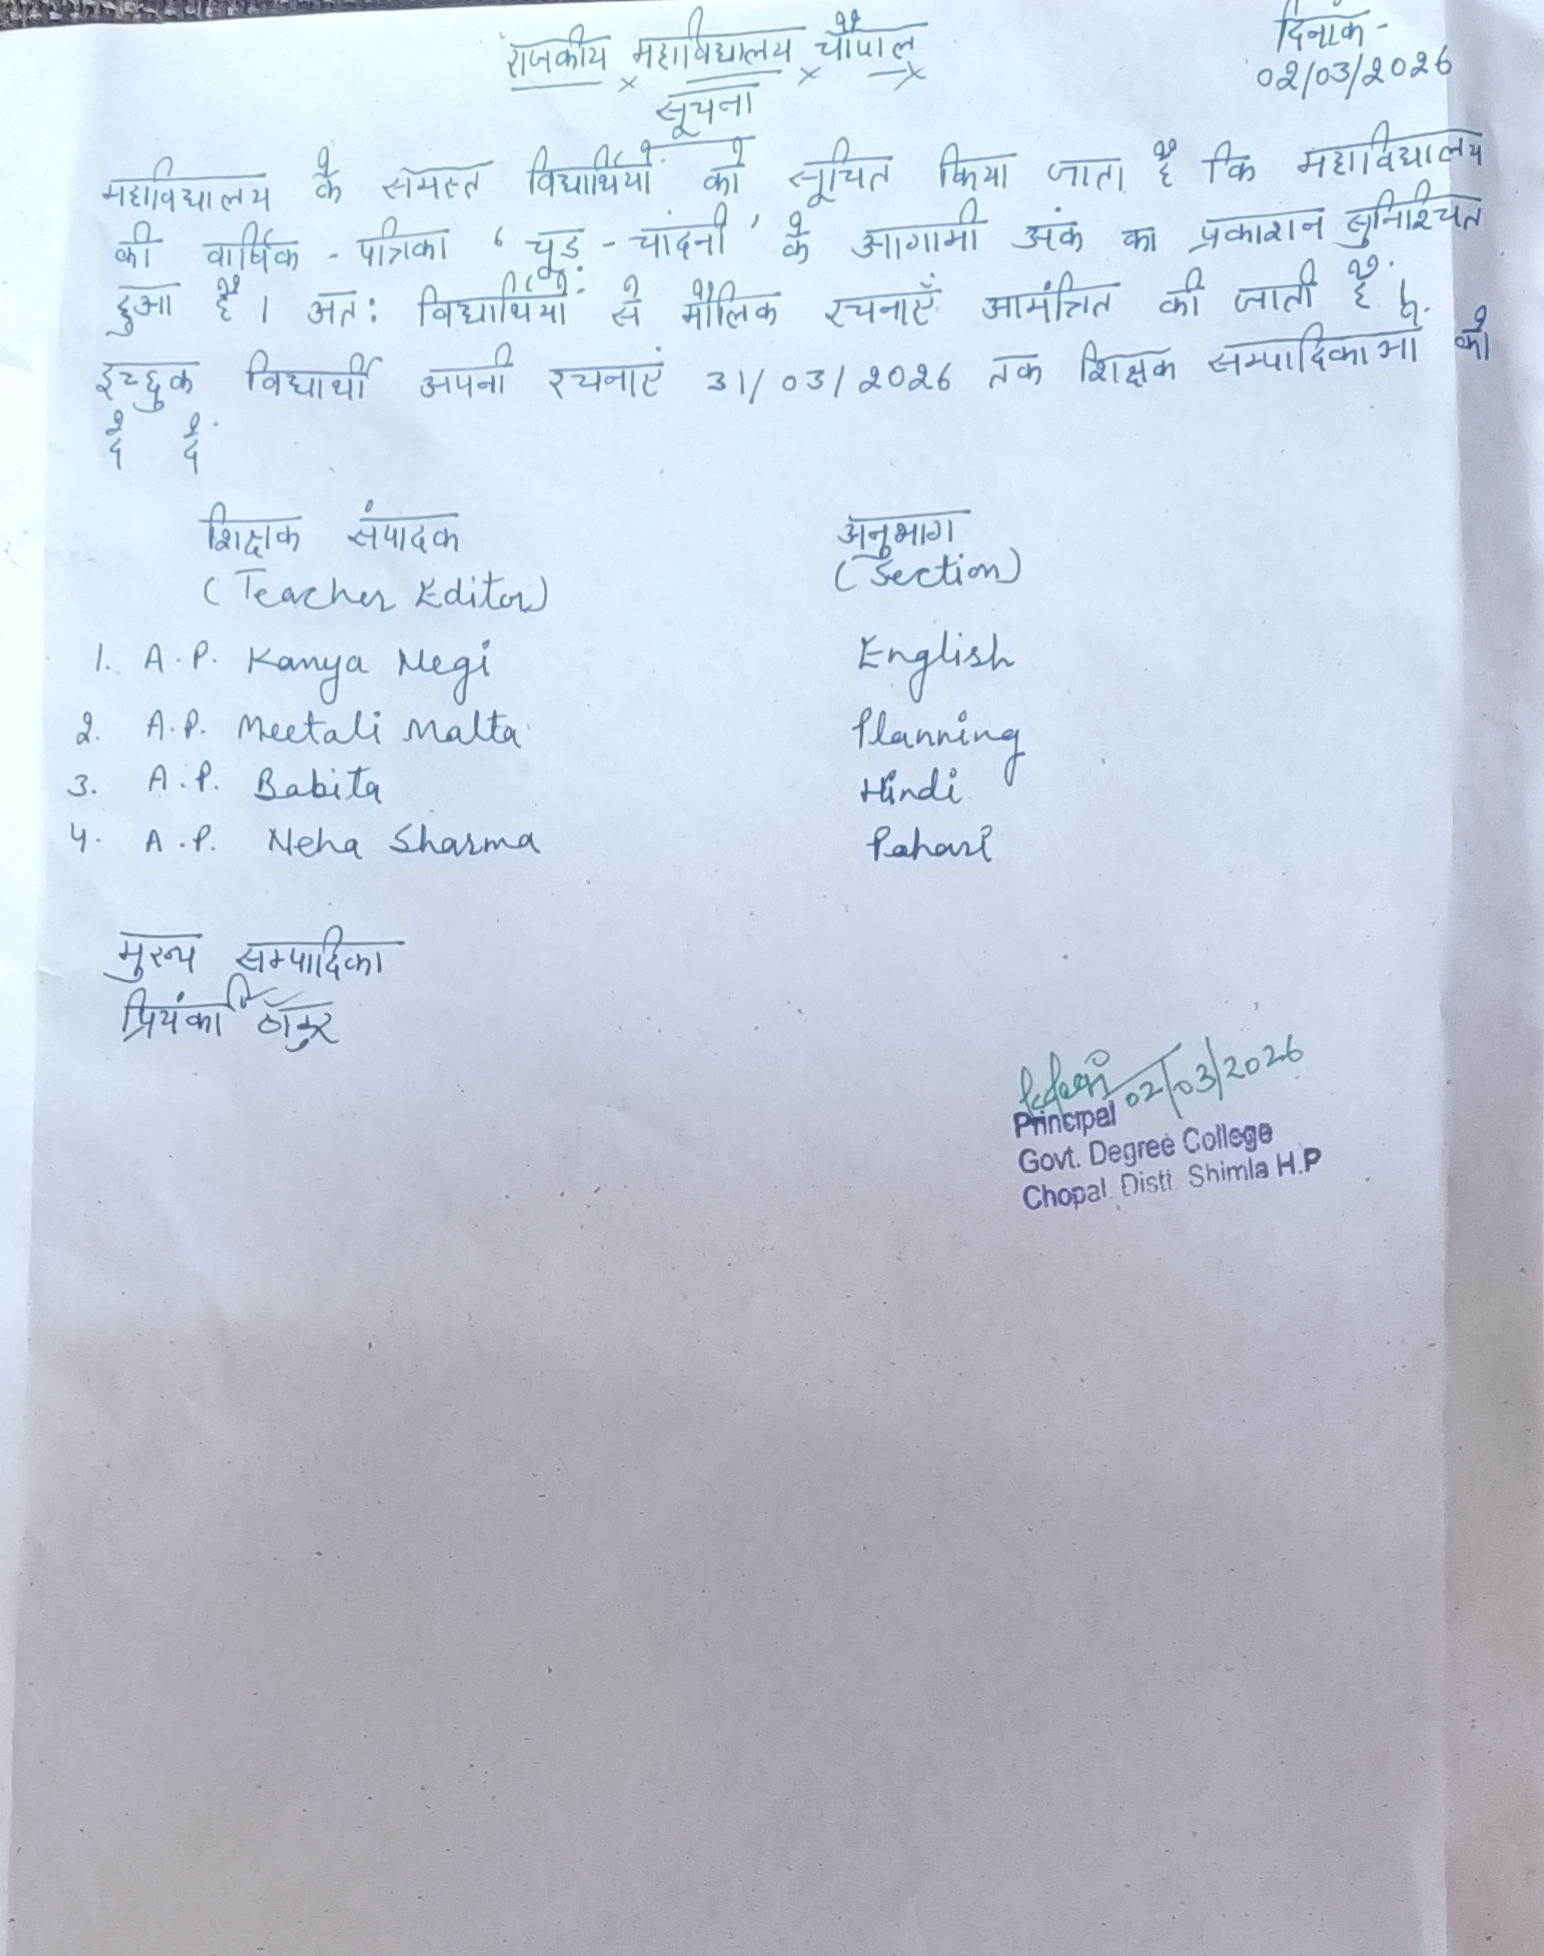 राजकीय महाविद्यालय चौपाल
दिनांक -
02/03/2026
सूचना
महाविद्यालय के समस्त विद्यार्थियों को सूचित किया जाता है कि महाविद्यालय
की वार्षिक - पत्रिका ' चूड़ - चांदनी ' के आगामी अंक का प्रकाशन सुनिश्चित
हुआ है । अत: विद्यार्थियों से मौलिक रचनाएँ आमंत्रित की जाती हैं
इच्छुक विद्यार्थी अपनी रचनाएं 31/03/2026 तक शिक्षक सम्पादिकाओं को
दे दें
शिक्षक संपादक अनुभाग
(Teacher Editor) (Section)
1. A.P. Kanya Negi English
2. A.P. Meetali Malta Planning
3. A.P. Babita Hindi
4. A.P. Neha Sharma Pahari
मुख्य सम्पादिका
प्रियंका ठाकुर
02/03/2026
Principal
Govt. Degree College
Chopal. Distt. Shimla H.P